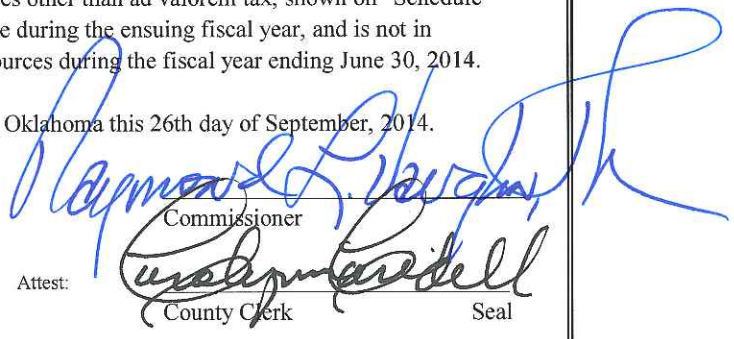 es other than ad valorem tax, shown on "Schedule
e during the ensuing fiscal year, and is not in
ources during the fiscal year ending June 30, 2014.
Oklahoma this 26th day of September, 2014.
Raymond L. Vaughn, Jr
Commissioner
Attest:
Carolynn Caudill
County Clerk Seal